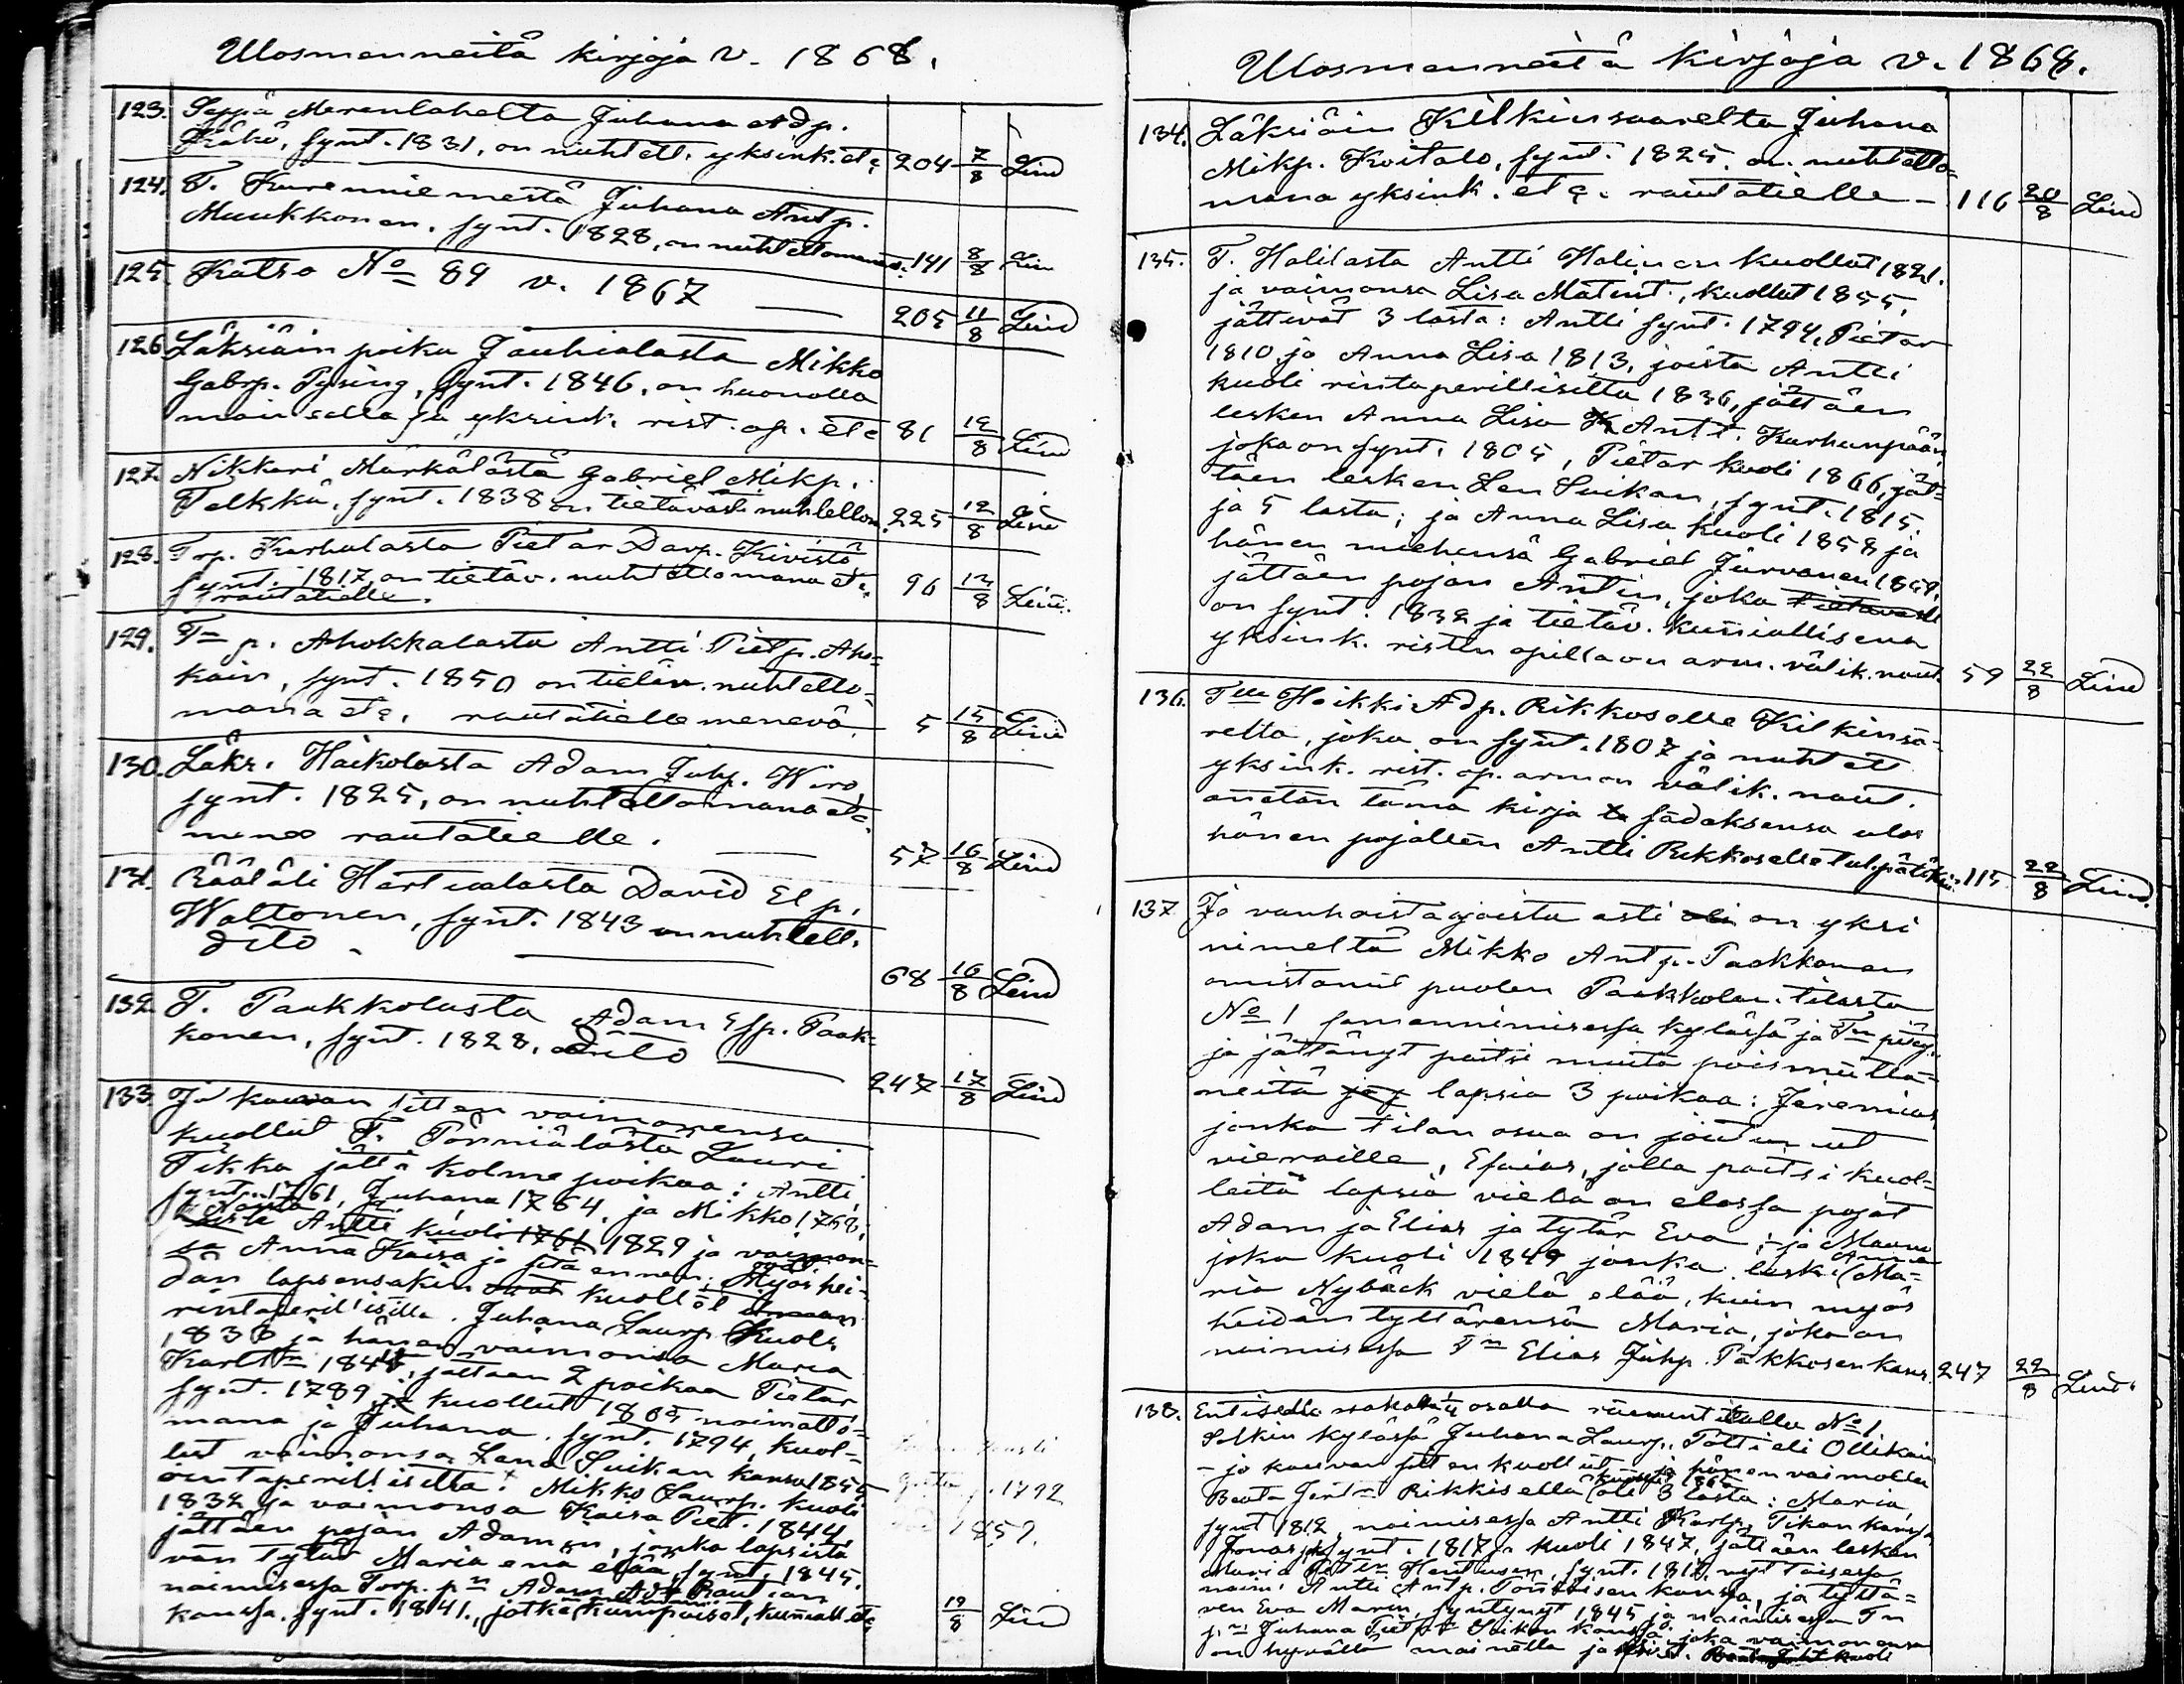 Ulosmenneitä kirjoja v. 1868.
123. Seppä Merenlahelta Juhana Adp.
Kähö, synt. 1831, on nuhtett. yksink. etc 204 7/8 Lind
124. T. Kurenniemestä Juhana Antp.
Muukkonen, synt. 1828, on nuhtettomana. 141 8/8 Lin
125. Katso No 89 v. 1867 205 11/8 Lind
126. Läksiäin poika Jauhialasta Mikko
Gabrp. Pysing, synt. 1846, on huonolla
mainealla ja yksink. rist. op. etc 81 12/8 Lind
127. Nikkari Märkälästä Gabriel Mikp.
Telkkä, synt. 1838 on tietäväst. nuhtetton. 225 12/8 Lind
128. Trp. Karhulasta Pietar Davp. Kivistö
synt. 1817, on tietäv. nuhtettomana etc. 96 13/8 Lind.
rautatielle.
129. Tn p. Ahokkalasta Antti Pietp. Aho=
kain, synt. 1850 on tietäv. nuhtetto=
mana etc. rautatielle menevä. 5 15/8 Lind
130. Läks. Haikolasta Adam Juhp. Wiro,
synt. 1825, on nuhtettomana etc.
menee rautatielle. 57 16/8 Lind
131. Räätäli Härtualasta David El p.
Waltonen, synt. 1843 on nuhtett.
dito - 68 16/8 Lind
132. T. Paakkolasta Adam Esp. Paak=
konen, synt. 1828. dito 247 17/8 Lind
133. Jo kauvan sitten vaimonensa
kuollut T. Pönniälästä Lauri
Tikka jätti kolme poikaa: Antti,
synt. 1761, Juhana 1764, ja Mikko 1768;
Antti kuoli 1761 1829 ja vaimon=
sa Anna Kaisa jo sitä ennen. Myös hei=
dän lapsensakin kuollet
rintaperillisittä. Juhana Laurp. kuoli
1838 ja hänen vaimonsa Maria
1848, jättäen 2 poikaa Pietar
synt. 1789, kuollut 1805 naimatto=
mana ja Juhana, synt. 1794, kuol=
lut vaimonsa Lena Suikan kanssa 1855
rintaperillisittä. Mikko Laurp. kuoli
1832 ja vaimonsa Kaisa Piet. 1844,
jättäen pojan Adamin, jonka lapsista
van tytär Maria ena elää, synt. 1845,
naimisessa Torp. pn Adam Rautian
kanssa, synt. 1841, jotka kunniall. etc 19/8 Lind
1792
1859.
Ulosmenneitä kirjoja v. 1868.
134. Läksiäin Kilkinsaarelta Juhana
Mikp. Koitalo, synt. 1825, on nuhtetto=
mana yksink. etc. rautatielle - 116 20/8 Lind
135. T. Halilasta Antti Halinen kuollut 1821.
ja vaimonsa Lisa Matint., kuollut 1855,
jättivät 3 lasta: Antti synt. 1794, Pietar
1810 ja Anna Lisa 1813, joista Antti
kuoli rintaperillisittä 1836, jättäen
lesken Anna Lisa Antt. Karhunpään
joka on synt. 1805, Pietar kuoli 1866, jät=
täen lesken Len Suikan, synt. 1815,
ja 5 lasta; ja Anna Lisa kuoli 1858 ja
hänen miehensä Gabriel Järvonen 1859
jättäen pojan Antin, joka tietäväst
on synt. 1832 ja tietäv. kunniallisena
yksink. ristin opilla on arm. välik. naut. 59 22/8 Lind
136. Tlle Heikki Adp. Rikkoselle Kilkinsa=
relta, joka on synt. 1807 ja nuhtett
yksink. rist. op. armon välik. naut.
annetan tämä kirja sadaksensa ulos
hänen pojallen Antti Rikkoselle tul. päätöksin. 115 22/8 Lind.
137. Jo vanhoista ajoista asti on yksi
nimeltä Mikko Antp. Paakkonen
omistanut puolen Paakkolan tilasta
No 1 samannimisessä kylässä ja Tn pitäj.
ja jättänyt paitsi muita poismuutta=
neita lapsia 3 poikaa: Jeremias
jonka tilan osa on joutunut
vieraille, Esaias, jolla paitsi kuol=
leita lapsia vielä on elossa pojat
Adam ja Elias ja tytär Eva; ja Maunu
joka kuoli 1849 jonka leski Anna Ma=
ria Nybäck vielä elää, kuin myös
heidän tyttärensä Maria, joka on
naimisessa Tn Elias Juhp. Pakkosen kans. 247 22/8 Lind.
138. Entisellä osalla ruununtilalla No 1
Solkin kylässä Juhana Laurp. Pöltti eli Ollikain
- jo kauvan sitten kuollut ja hänen vaimolla
Beata Rikkisellä oli 3 lasta: Maria
synt 1812, naimisessa Antti Karlp. Tikan kanssa
Jonas, synt. 1817, kuoli 1847, jättäen lesken
Maria Henttusen, synt. 1817, nyt toisessa
naim. Antti Antp. kanssa, ja tyttä=
ren Eva Maria, syntynyt 1845 ja naimisessa Tn
p. Juhana Suikan kanssa, joka vaimonensa
on hyvällä mainella ja kuoli